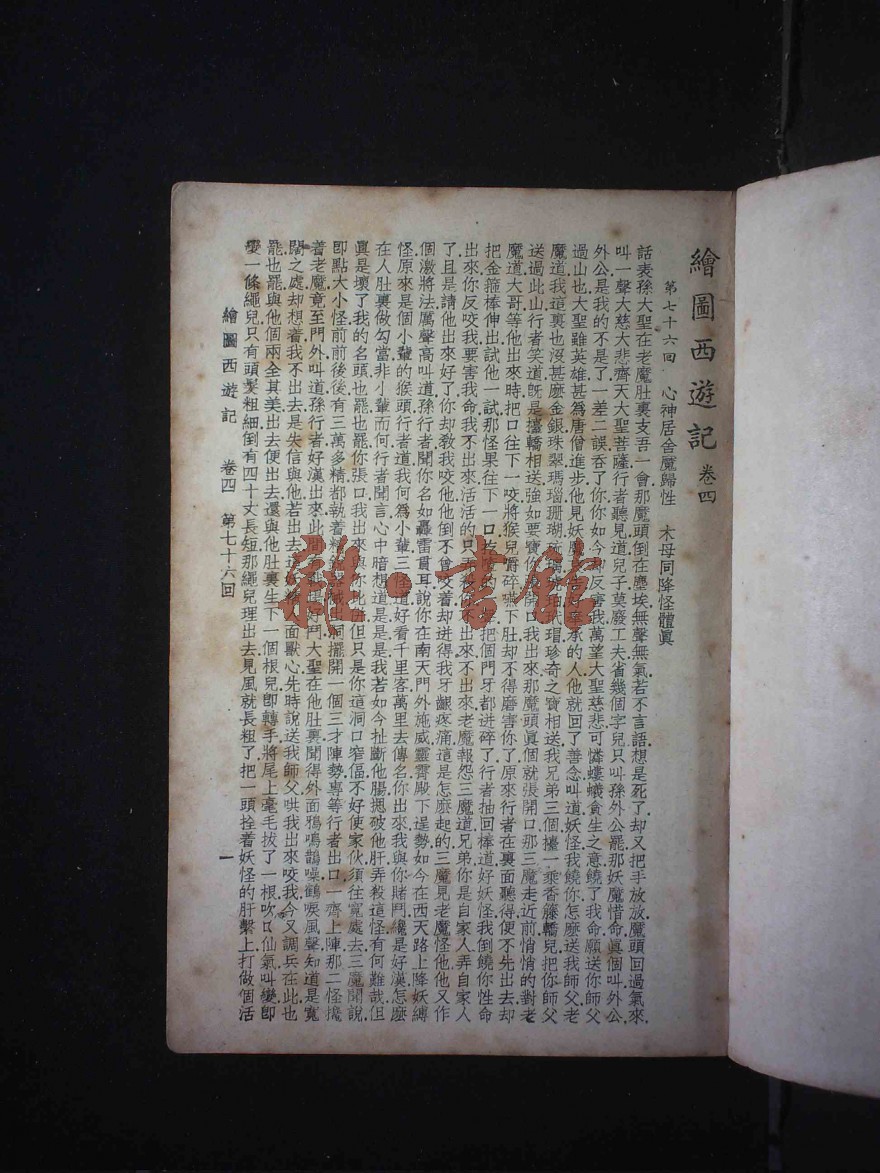 繪圖西遊記 卷四
第七十六回 心神居舍魔歸性 木母同降怪體眞
話表孫大聖在老魔肚裏支吾一會那魔頭倒在塵埃無聲無氣若不言語想是死了却又把手放放魔頭回過氣來
叫一聲大慈大悲齊天大聖菩薩行者聽見道兒子莫廢工夫省幾個字兒只叫孫外公罷那妖魔惜命眞個叫外公
外公是我的不是了一差二誤吞了你你如今却反害我萬望大聖慈悲可憐螻蟻貪生之意饒了我命願送你師父
過山也大聖雖英雄甚爲唐僧進步他見妖魔
好奉承的人他就回了善念叫道妖怪我饒你怎麽送我師父老
魔道我這裏也沒甚麽金銀珠翠瑪瑙珊瑚
琥珀玳瑁珍奇之寶相送我兄弟三個擡一乘香籐轎兒把你師父
送過此山行者笑道旣是擡轎相送強如要寶你
開口我出來那魔頭眞個就張開口那三魔走近前悄悄的對老
魔道大哥等他出來時把口往下一咬將猴兒嚼碎嚥下肚却不得磨害你了原來行者在裏面聽得便不先出去却
把金箍棒伸出試他一試那怪果往下一口
的
把個門牙都迸碎了行者抽回棒道好妖怪我倒饒你性命
出來你反咬我要害我命我不出來活活的只弄
不出來不出來老魔報怨三魔道兄弟你是自家人弄自家人
了且是請他出來好了你却教我咬他他倒不曾咬着却迸得我牙齦疼痛這是怎麽起的三魔見老魔怪他他又作
個激將法厲聲高叫道孫行者聞你名如轟雷貫耳說你在南天門外施威靈霄殿下逞勢如今在西天路上降妖縛
怪原來是個小輩的猴頭行者道我何爲小輩三怪道好看千里客萬里去傳名你出來我與你賭鬥纔是好漢怎麽
在人肚裏做勾當非小輩而何行者聞言心中暗想道是是是我若如今扯斷他腸摁破他肝弄殺這怪有何難哉但
眞是壞了我的名頭也罷也罷你張口我出來與你比併但只是你這洞口窄偪不好使家伙須往寬處去三魔聞說
卽點大小怪前前後後有三萬多精都執着精
器械出洞擺開一個三才陣勢專等行者出口一齊上陣那二怪攙
着老魔竟至門外叫道孫行者好漢出來此間
戰場好鬥大聖在他肚裏聞得外面鴉鳴鵲噪鶴唳風聲知道是寬
闊之處却想着我不出去是失信與他若出去這妖
面獸心先時說送我師父哄我出來咬我今又調兵在此也
罷也罷與他個兩全其美出去便出去還與他肚裏生下一個根兒卽轉手將尾上毫毛拔了一根吹口仙氣叫變卽
變一條繩兒只有頭髮粗細倒有四十丈長短那繩兒理出去見風就長粗了把一頭拴着妖怪的肝繫上打做個活
繪圖西遊記 卷四 第七十六回 一
雜·書館